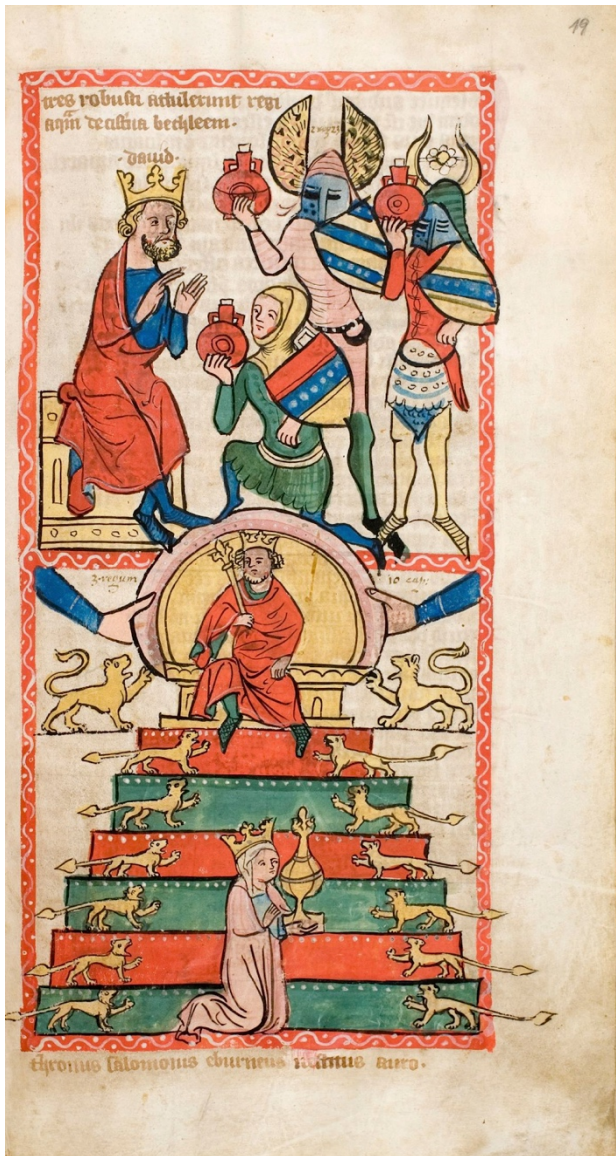 19
tres robusti attulerunt regi
aqm̄ de cist'na bethleem·
·dauid·
2 reg 23
3·regum
10 cap̄
thronus salomonis eburneus auro·